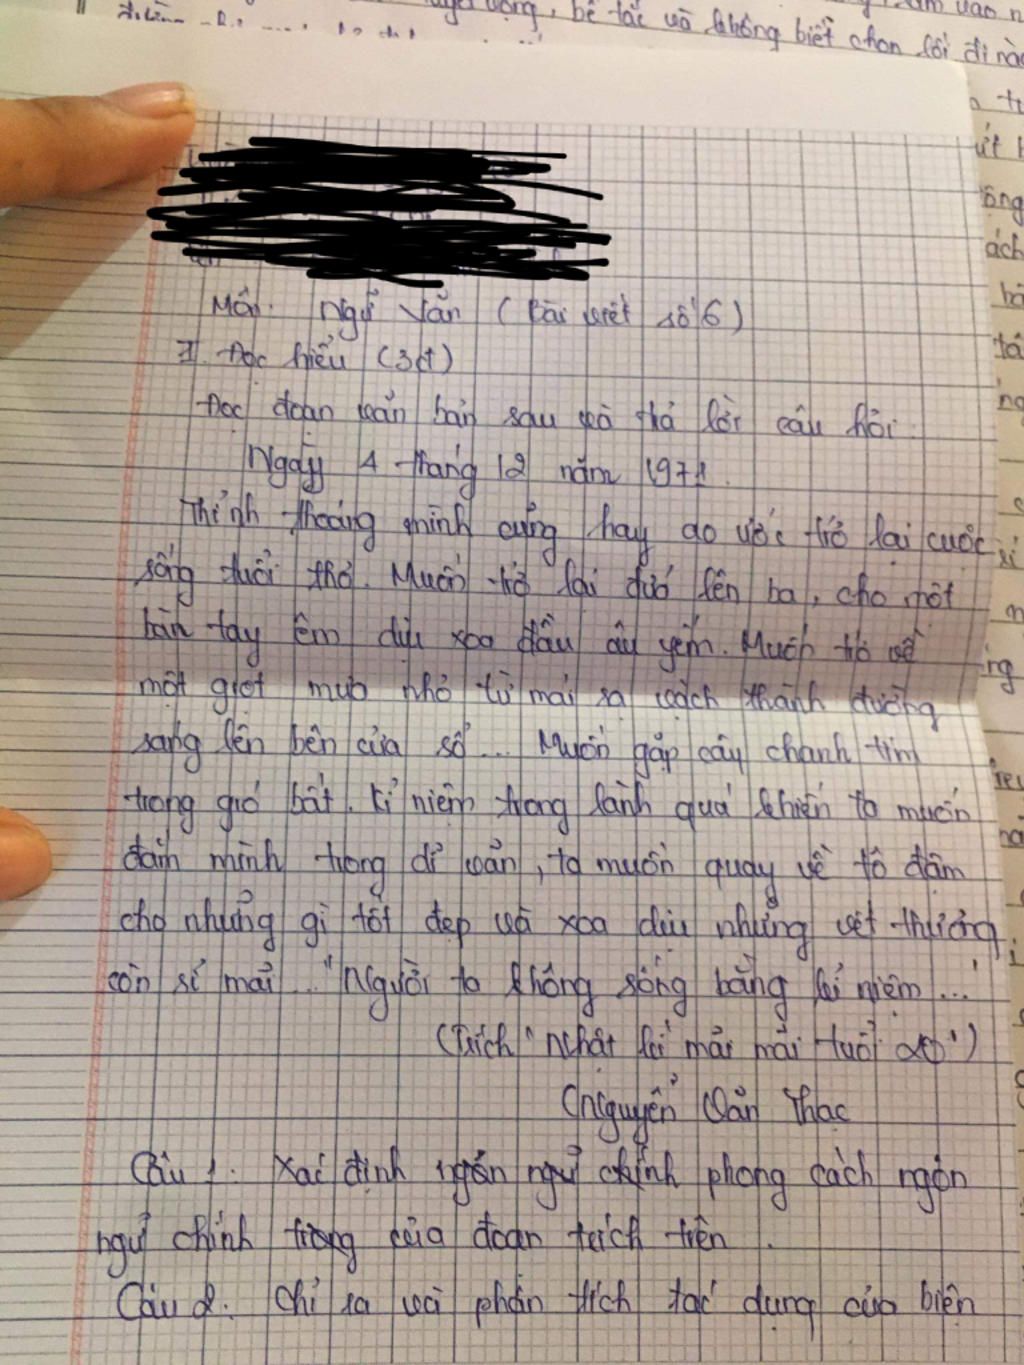 bế tắc và không biết chọn lối đi nào
Môn: Ngữ Văn (Bài viết số 6)
I. Đọc hiểu (3đ)
Đọc đoạn văn bản sau và trả lời câu hỏi:
Ngày 4 tháng 12 năm 1971.
Thỉnh thoảng mình cũng hay ao ước trở lại cuộc
sống tuổi thơ. Muốn trở lại đứa lên ba, cho một
bàn tay êm dịu xoa đầu âu yếm. Muốn trở về
một giọt mưa nhỏ từ mái rạ vạch thành đường
sáng lên bên cửa sổ... Muốn gặp cây chanh tím
trong gió bất. Kỉ niệm trong lành quá khiến ta muốn
đắm mình trong dĩ vãn, ta muốn quay về tô đậm
cho những gì tốt đẹp và xoa dịu những vết thương
còn sỉ mãi... "Người ta không sống bằng kỉ niệm...'
(Trích "Nhật kí mãi mãi tuổi 20")
(Nguyễn Văn Thạc
Câu 1: Xác định ngôn ngữ chính phong cách ngôn
ngữ chính trong của đoạn trích trên.
Câu 2: Chỉ ra và phân tích tác dụng của biện